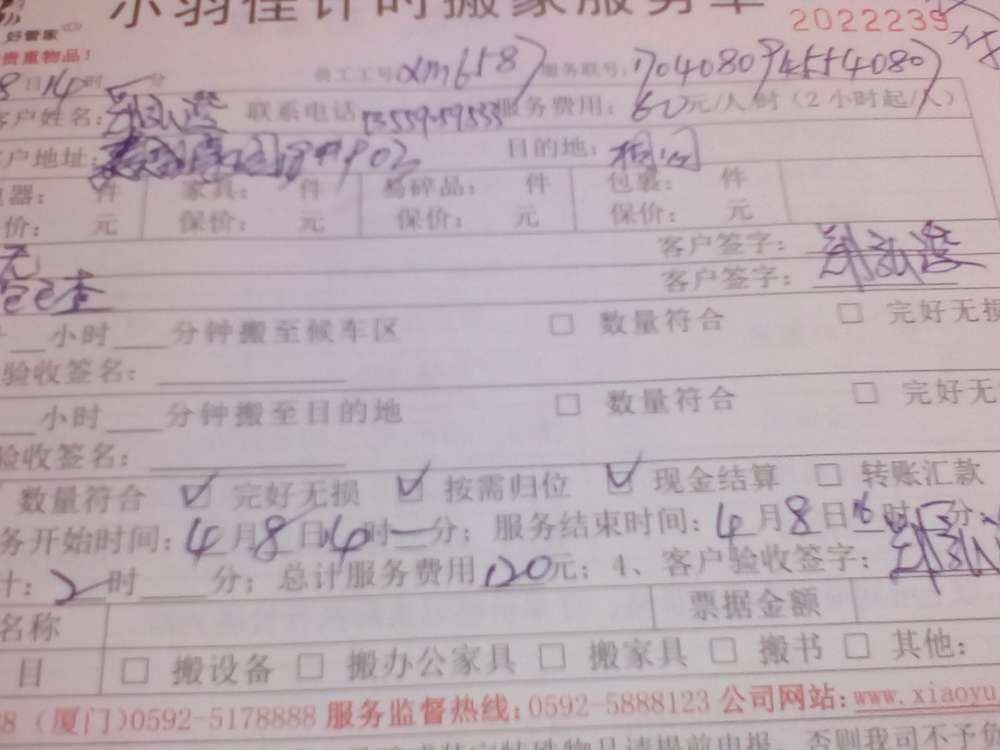 小羽佳计时搬家服务单
2022239
好管家
贵重物品!
8日14时 分 员工工号xm658 服务联号:
客户姓名: 联系电话 服务费用:60元/人/时(2小时起/人)
客户地址: 902 目的地:
电器: 件 家具: 件 易碎品: 件 包裹: 件
保价: 元 保价: 元 保价: 元 保价: 元
元 客户签字:
已查 客户签字:
小时 分钟搬至候车区 □ 数量符合 □ 完好无损
验收签名:
小时 分钟搬至目的地 □ 数量符合 □ 完好无
验收签名:
数量符合 ☑ 完好无损 ☑ 按需归位 ☑ 现金结算 □ 转账汇款
务开始时间:4月8日14时一分;服务结束时间:4月8日16时 分;
计:2时 分;总计服务费用120元;4、客户验收签字:
名称 票据金额
目 □ 搬设备 □ 搬办公家具 □ 搬家具 □ 搬书 □ 其他:
88(厦门)0592-5178888 服务监督热线:0592-5888123 公司网站:www.xiaoyu
特殊物品请提前申报,否则我司不予负